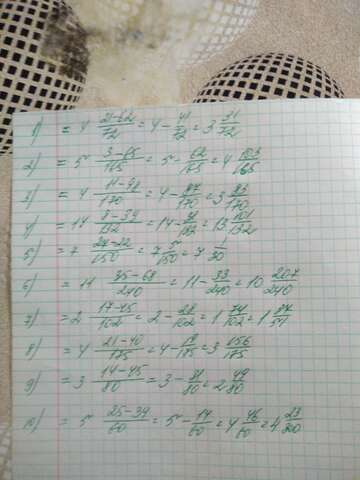 1) = 4 21-62/72 = 4 - 41/72 = 3 31/72
2) = 5 3-65/165 = 5 - 62/165 = 4 103/165
3) = 4 11-98/170 = 4 - 87/170 = 3 83/170
4) = 14 8-39/132 = 14 - 31/132 = 13 101/132
5) = 7 27-22/150 = 7 5/150 = 7 1/30
6) = 11 35-68/240 = 11 - 33/240 = 10 207/240
7) = 2 17-45/102 = 2 - 28/102 = 1 74/102 = 1 37/51
8) = 4 21-40/175 = 4 - 19/175 = 3 156/175
9) = 3 14-45/80 = 3 - 31/80 = 2 49/80
10) = 5 25-39/60 = 5 - 14/60 = 4 46/60 = 4 23/30